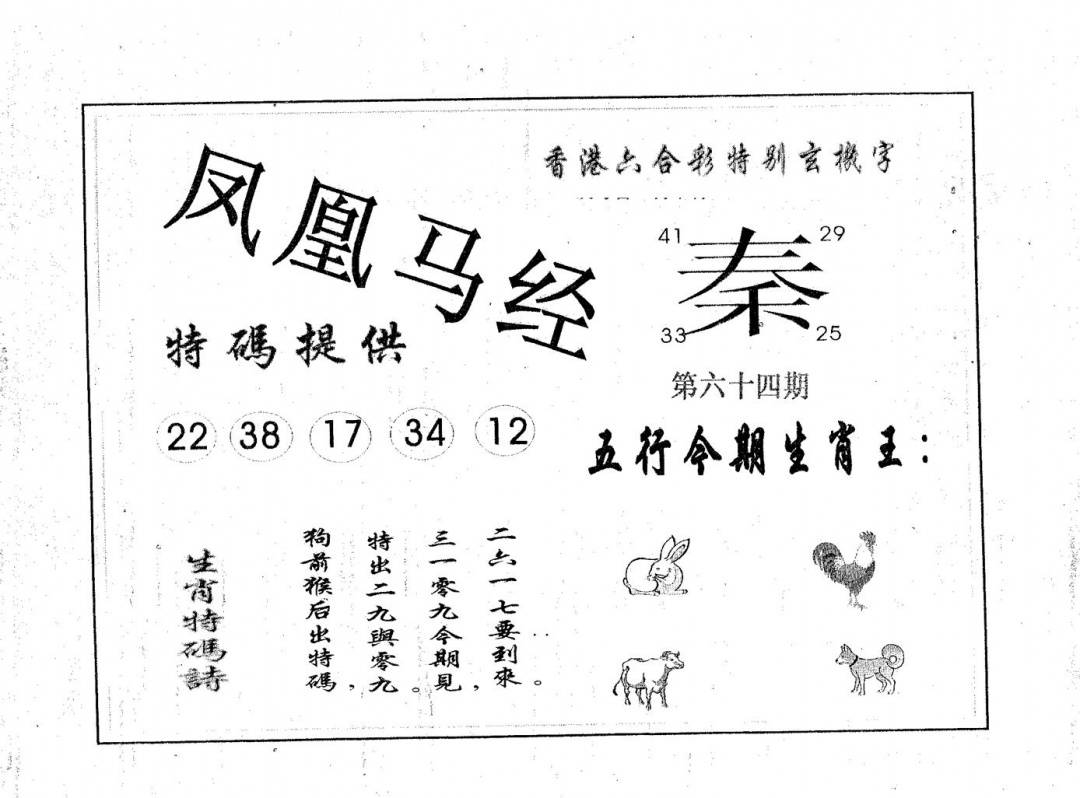 凤凰马经
香港六合彩特别玄機字
41 29
秦
33 25
特碼提供
第六十四期
22 38 17 34 12
五行今期生肖王：
生肖特碼詩
狗前猴后出特碼，
特出二九與零九。
三一零九今期見，
二六一七要到來。